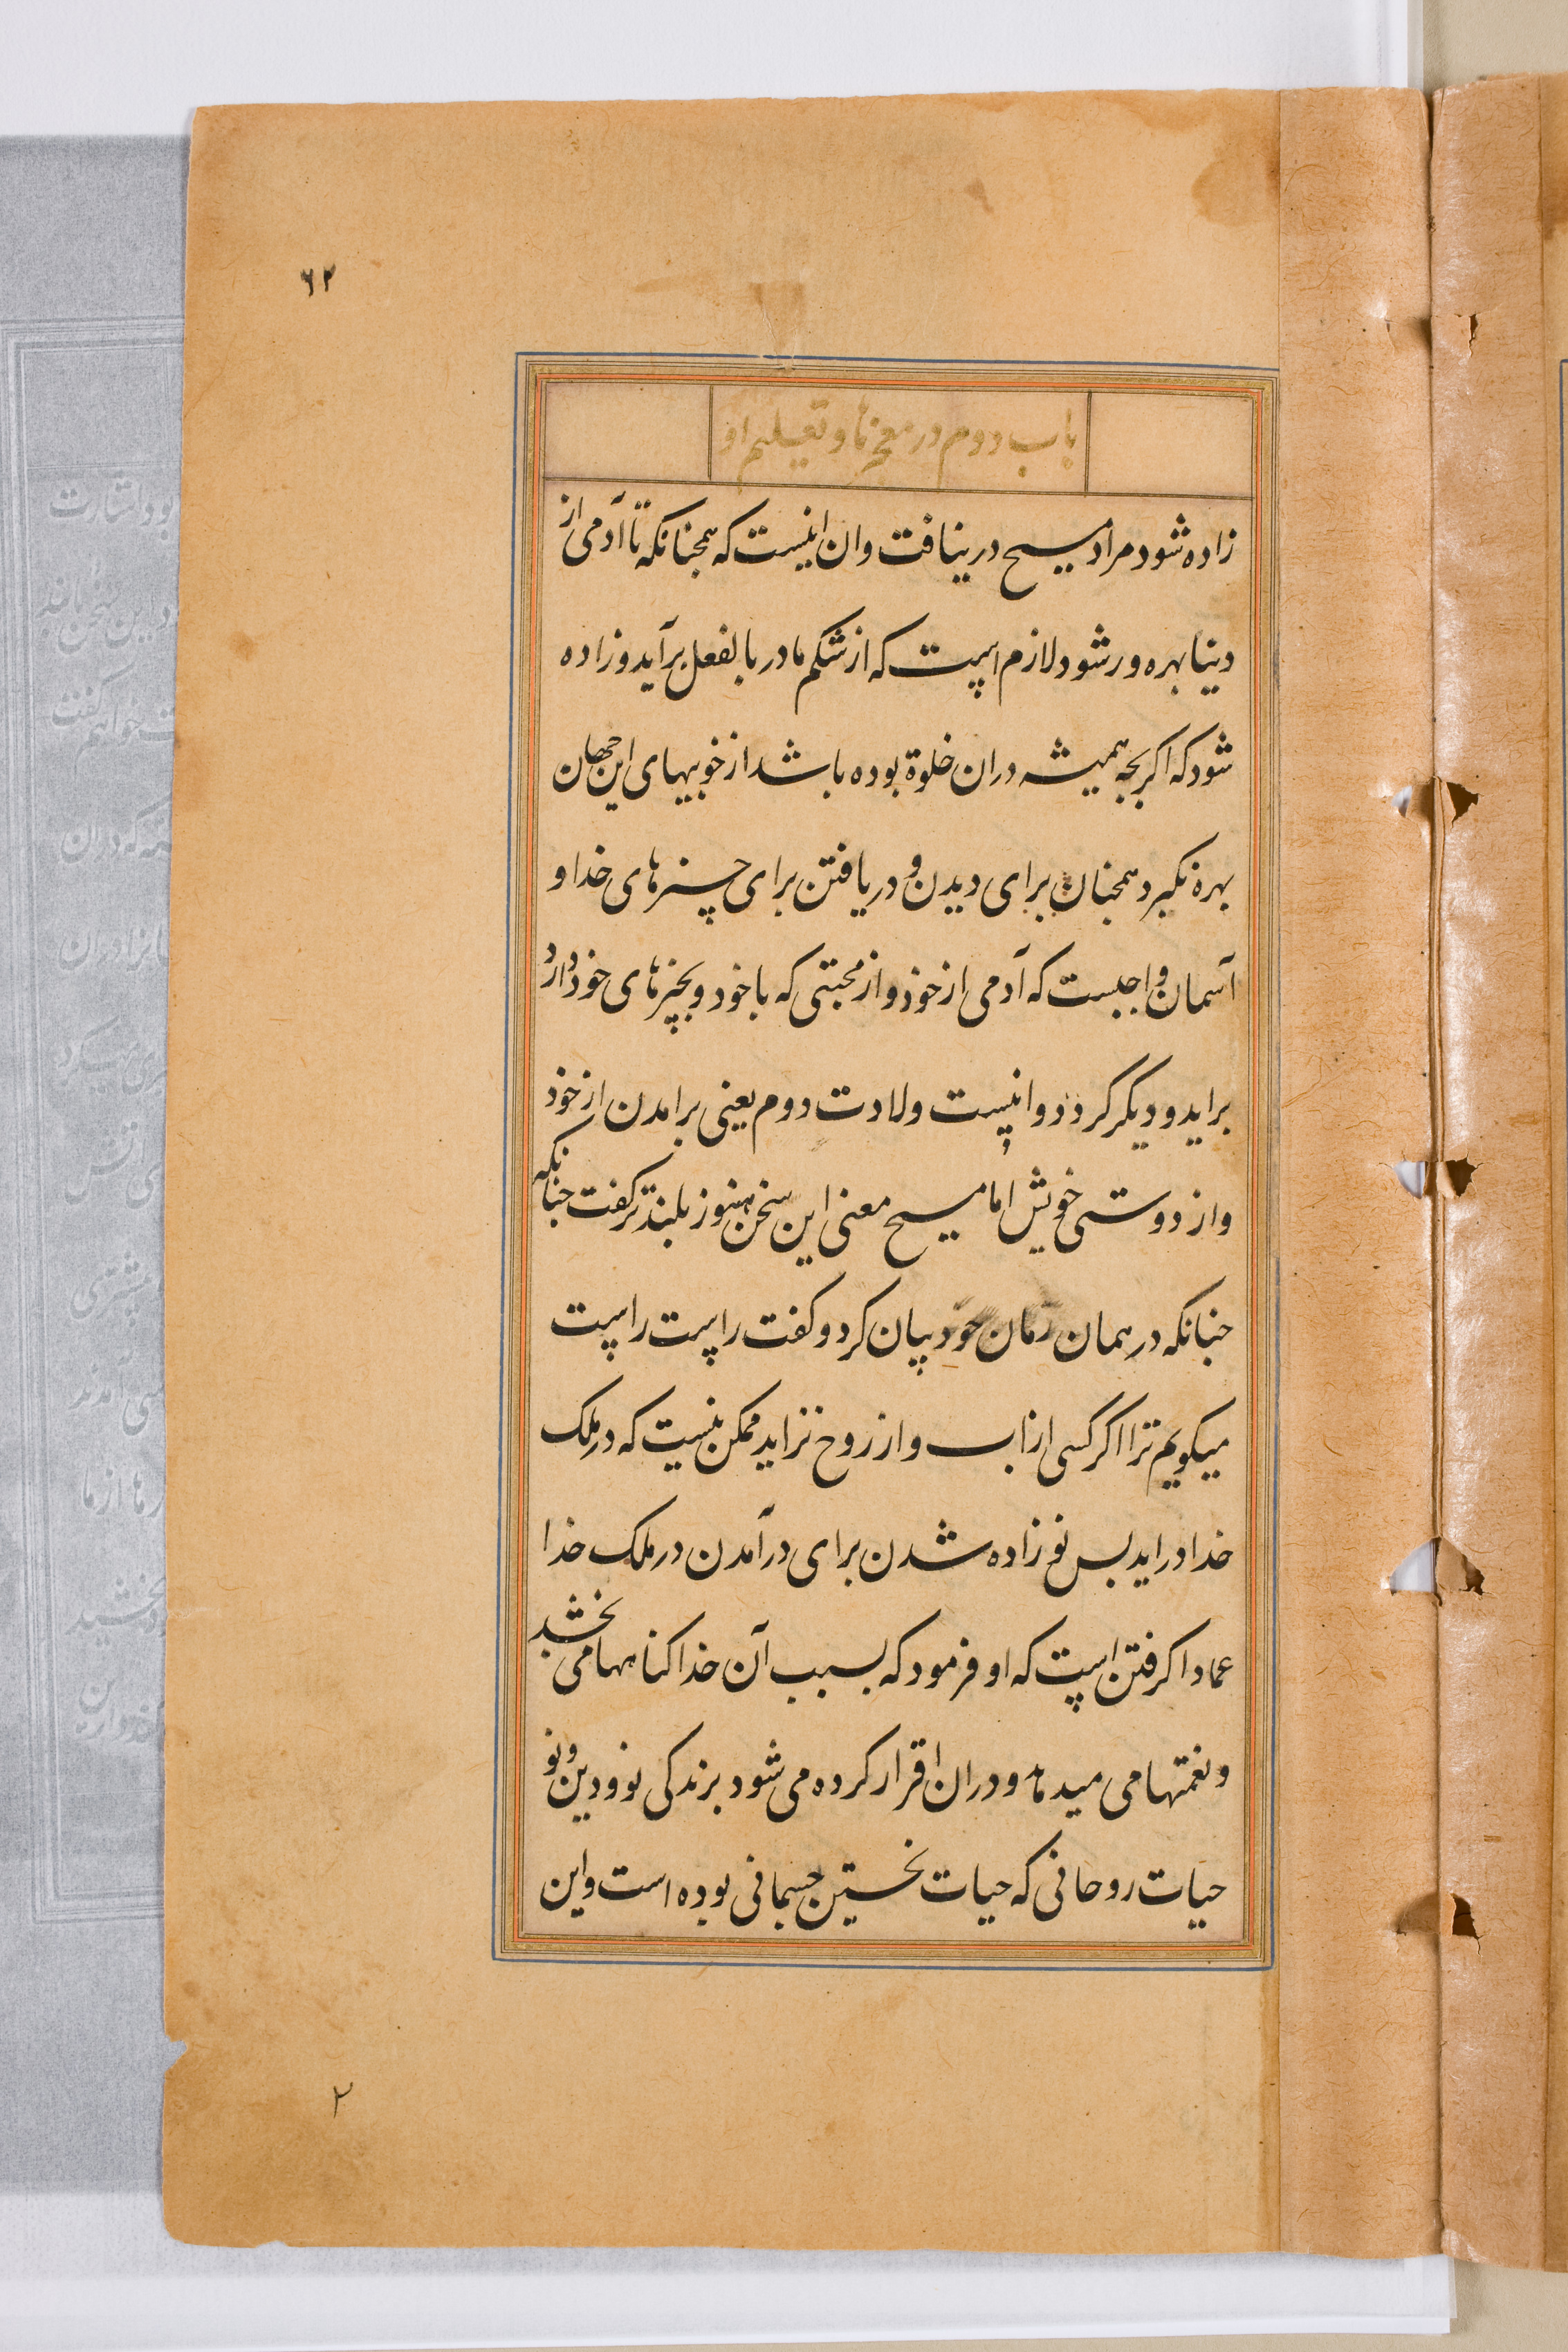 ۶۲
باب دوم در معجزها و تعلیم او
زاده شود مراد مسیح در نیافت وان اینست که همجنانکه تا آدمی از
دینا بهره ور شود لازم است که از شکم مادر بالفعل برآید و زاده
شود که اکر بچه همیشه دران خلوة بوده باشد از خوبیهای این جهان
بهره نکیرد همجنان برای دیدن و دریافتن برای چیزهای خدا و
آسمان واجبست که آدمی از خود و از محبتی که با خود و بچیزهای خود دارد
براید و دیکر کردد و اینست ولادت دوم یعنی برامدن از خود
و از دوستی خویش اما مسیح معنی این سخن هنوز بلندتر کفت جنانکه
جنانکه در همان زمان خود بیان کرد و کفت راست راست
میکویم ترا اکر کسی از اب و از روح نزاید ممکن نیست که در ملک
خدا دراید بس نو زاده شدن برای درآمدن در ملک خدا
عماد اکرفتن است که او فرمود که بسبب آن خدا کناهها می بخشد
و نعمتها می میدهد و دران اقرار کرده می شود بزندکی نو و دین نو و
حیات روحانی که حیات نخستین جسمانی بوده است و این
۲